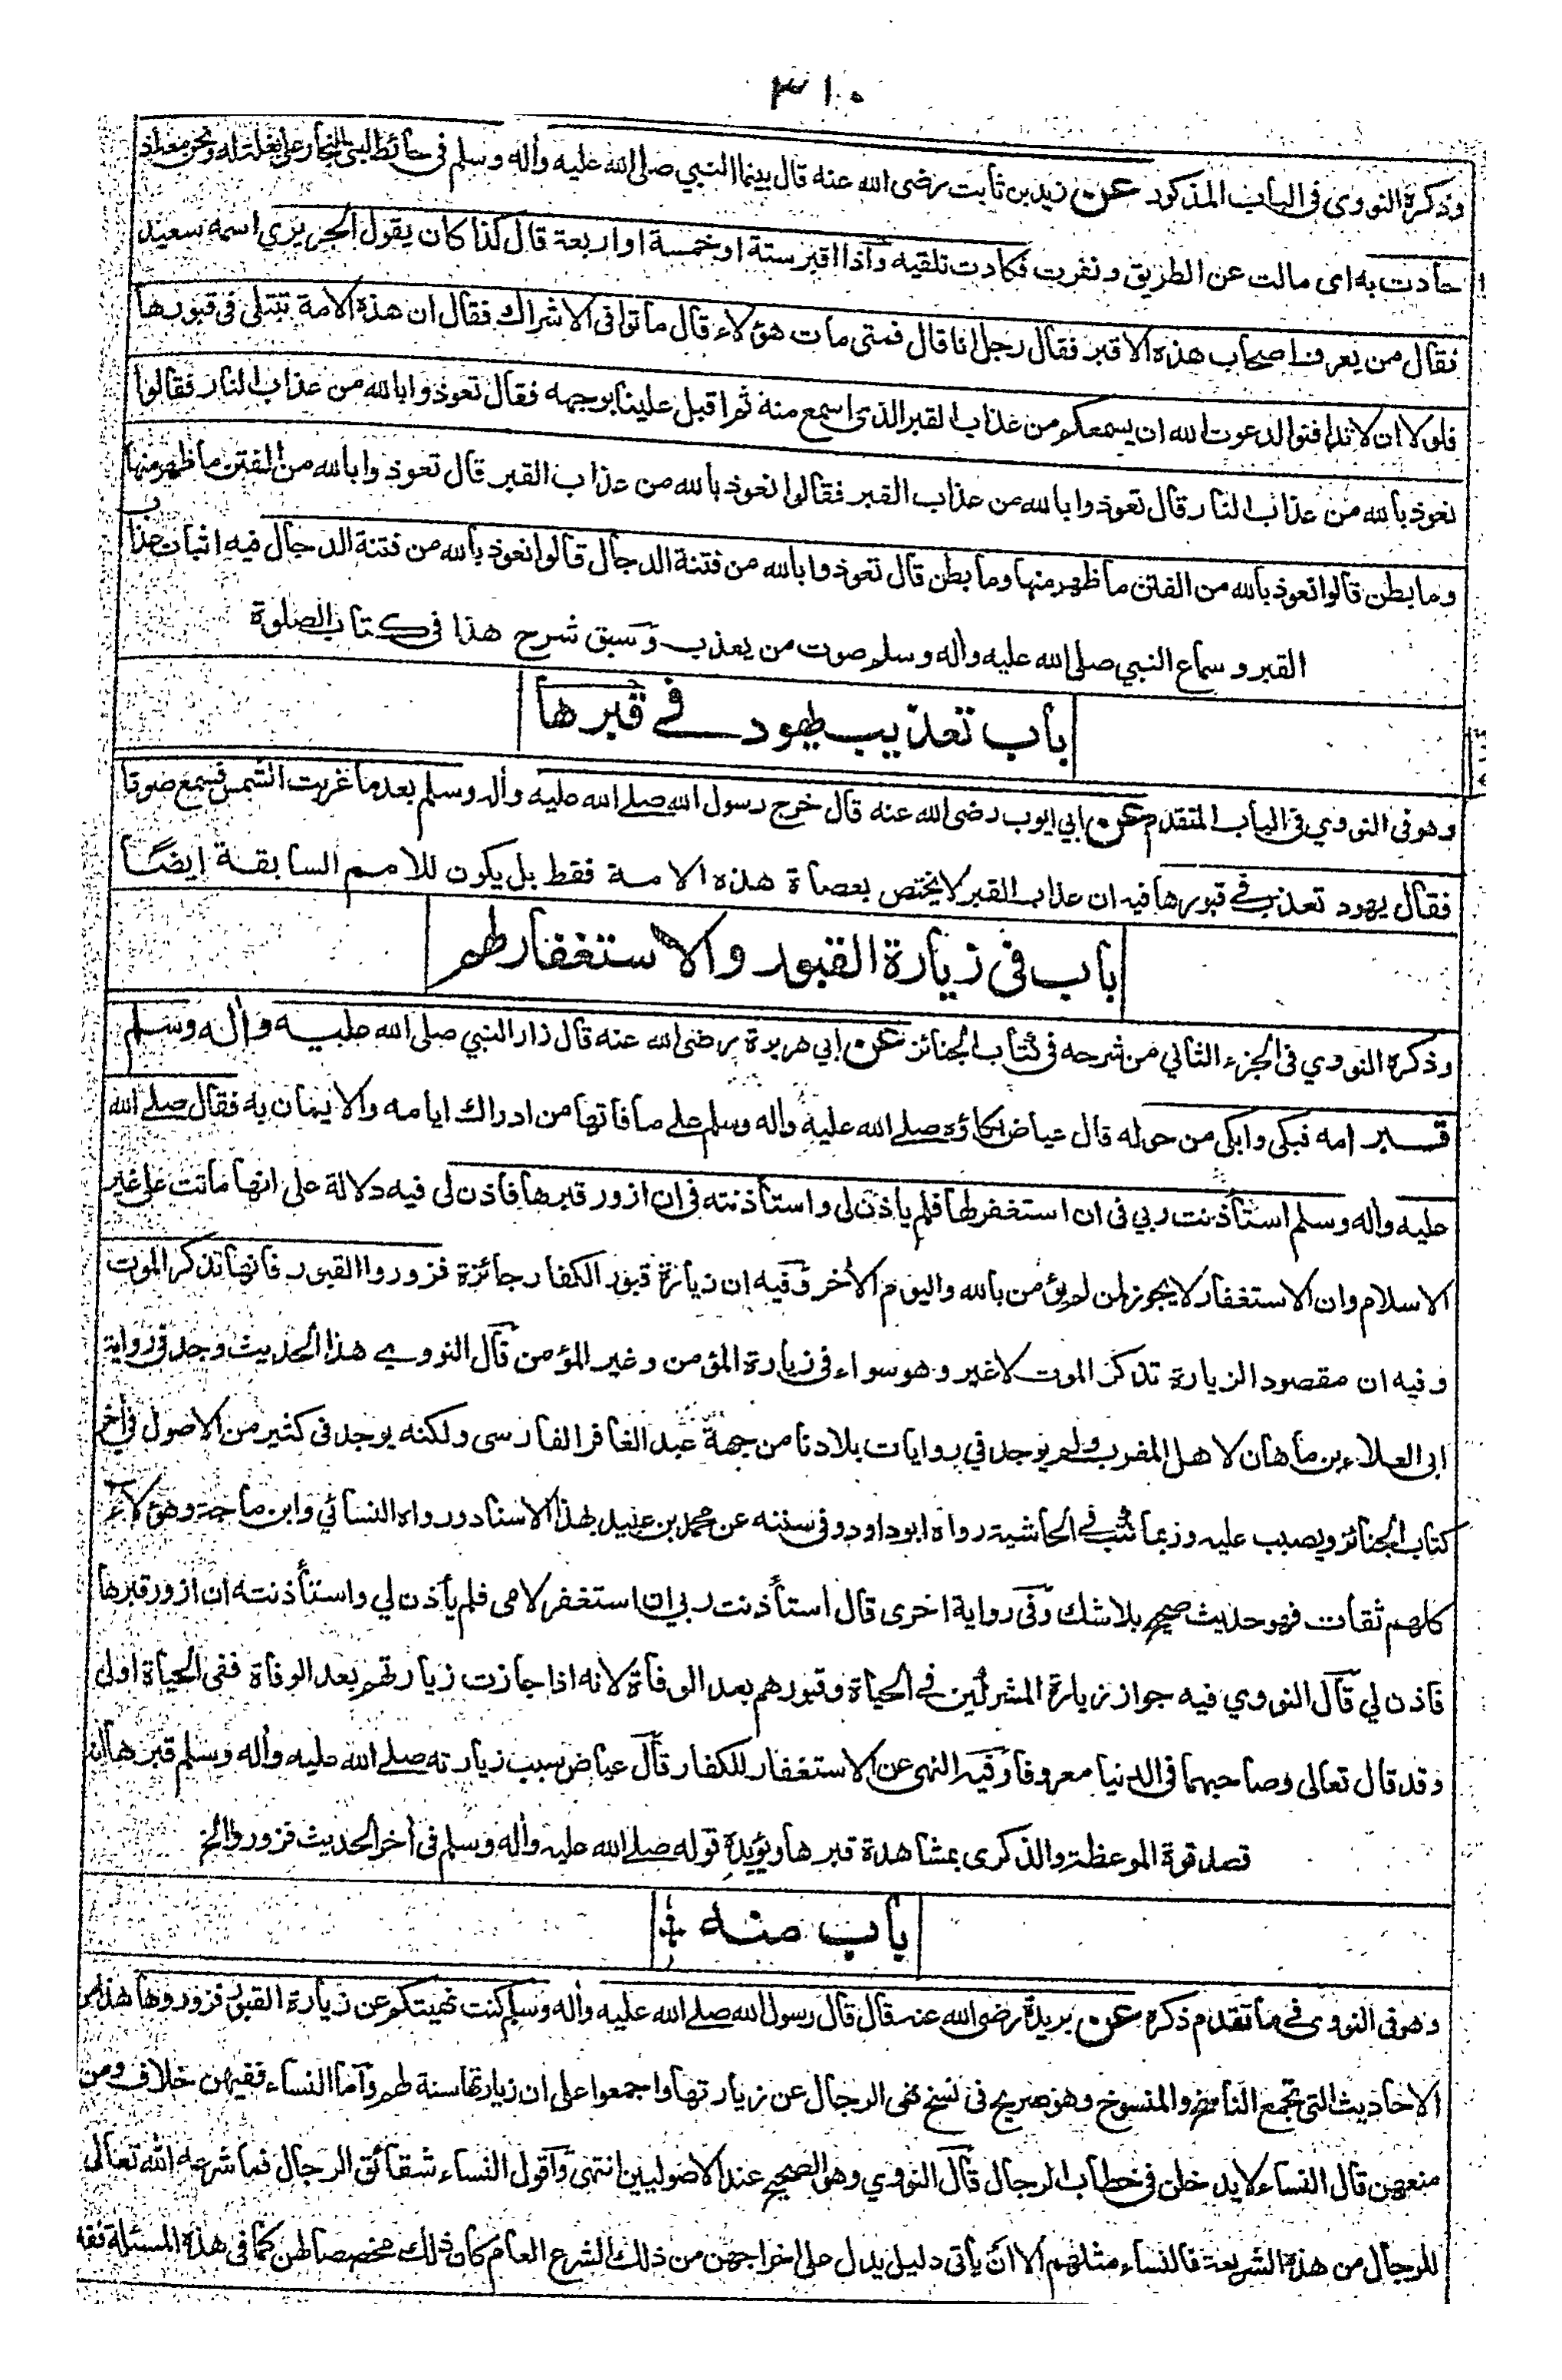 ٣١٠
وذكره النووى فى الباب المذكور عن زيد بن ثابت رضى الله عنه قال بينما النبي صلى الله عليه وأله وسلم فى حائط لبنى النجار على بغلة له ونحن معه اذ
حادت به اى مالت عن الطريق و نفرت فكادت تلقيه وآذا اقبر ستة او خمسة او اربعة قال كذا كان يقول الجريري اسمه سعيد
فقال من يعرف اصحاب هذه الاقبر فقال رجل انا قال فمتى مات هؤلاء قال ماتوا فى الاشراك فقال ان هذه الامة تبتلى فى قبورها
فلولا ان لا تدافنوا لدعوت الله ان يسمعكم من عذاب القبر الذى اسمع منه ثم اقبل علينا بوجهه فقال تعوذوا بالله من عذاب النار فقالوا
نعوذ بالله من عذاب النار قال تعوذوا بالله من عذاب القبر فقالوا نعوذ بالله من عذاب القبر قال تعوذوا بالله من الفتن ما ظهر منها
وما بطن قالوا نعوذ بالله من الفتن ما ظهر منها وما بطن قال تعوذوا بالله من فتنة الدجال قالوا نعوذ بالله من فتنة الدجال فيه اثبات عذاب
القبر و سماع النبي صلى الله عليه وأله وسلم صوت من يعذب وسبق شرح هذا فى كتاب الصلوة
باب تعذيب يهود فے قبرها
وهو فى النووي فى الباب المتقدم عن ابي ايوب رضى الله عنه قال خرج رسول الله صلے الله عليه وأله وسلم بعد ما غربت الشمس فسمع صوتا
فقال يهود تعذب فے قبورها فيه ان عذاب القبر لا يختص بعصاة هذه الامة فقط بل يكون للامم السابقة ايضًا
باب فى زيارة القبور والاستغفار لهم
وذكره النووي فى الجزء الثاني من شرحه فى كتاب الجنائز عن ابي هريرة رضى الله عنه قال زار النبي صلى الله عليه وأله وسلم
قبر امه فبكى وابكى من حوله قال عياض بكاؤه صلے الله عليه وأله وسلم على ما فاتها من ادراك ايامه والايمان به فقال صلے الله
عليه وأله وسلم استأذنت ربي فى ان استغفر لها فلم ياذن لى و استأذنته فى ان ازور قبرها فاذن لى فيه دلالة على انها ماتت على غير
الاسلام وان الاستغفار لا يجوز لمن لم يؤمن بالله واليوم الأخر وفيه ان زيارة قبور الكفار جائزة فزوروا القبور فانها تذكر الموت
وفيه ان مقصود الزيارة تذكر الموت لا غير و هو سواء فى زيارة المؤمن و غير المؤمن قآل النووے هذا الحديث وجد فى رواية
ابى العلاء بن ماهان لاهل المغرب ولم يوجد في روايات بلادنا من جهة عبد الغافر الفارسى ولكنه يوجد فى كثير من الاصول فى أخر
كتاب الجنائز ويصبب عليه وربما كتب فے الحاشية رواه ابو داود فى سننه عن محمد بن عبيد بهذا الاسناد ورواه النسائي وابن ماجة وهؤلاء
كلهم ثقات فهو حديث صحيح بلا شك وفى رواية اخرى قال استأذنت ربي ان استغفر لامى فلم يأذن لي واستأذنته ان ازور قبرها
فاذن لي قآل النووي فيه جواز زيارة المشركين فے الحياة وقبورهم بعد الوفاة لانه اذا جازت زيارتهم بعد الوفاة ففى الحياة اولى
وقد قال تعالى وصاحبهما فى الدنيا معروفا وفيه النهى عن الاستغفار للكفار قآل عياض سبب زيارته صلے الله عليه وأله وسلم قبرها انه
قصد قوة الموعظة والذكرى بمشاهدة قبرها ويؤيده قوله صلے الله عليه وأله وسلم فى أخر الحديث فزوروا الخ
باب منه
وهو فى النووى فے ما تقدم ذكره عن بريدة رضى الله عنه قال قال رسول الله صلے الله عليه وأله وسلم كنت نهيتكم عن زيارة القبور فزوروها هذا من
الاحاديث التى تجمع الناسخ والمنسوخ وهو صريح فى نسخ نهى الرجال عن زيارتها واجمعوا على ان زيارتها سنة لهم وآما النساء ففيهن خلاف ومن
منعهن قال النساء لا يدخلن فى خطاب الرجال قآل النووي وهو الصحيح عند الاصوليين انتهى وآقول النساء شقائق الرجال فما شرعه الله تعالى
للرجال من هذه الشريعة فالنساء مثلهم الا ان يأتى دليل يدل على اخراجهن من ذلك الشرع العام كان ذلك مخصصا لهن كما فى هذه المسئلة فقد